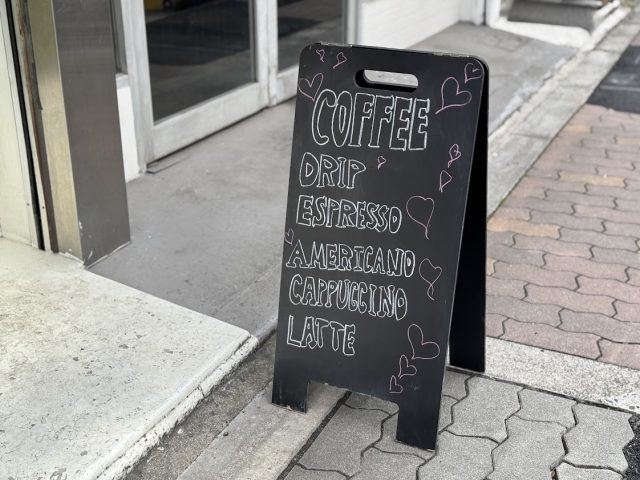 COFFEE
DRIP
ESPRESSO
AMERICANO
CAPPUCCINO
LATTE